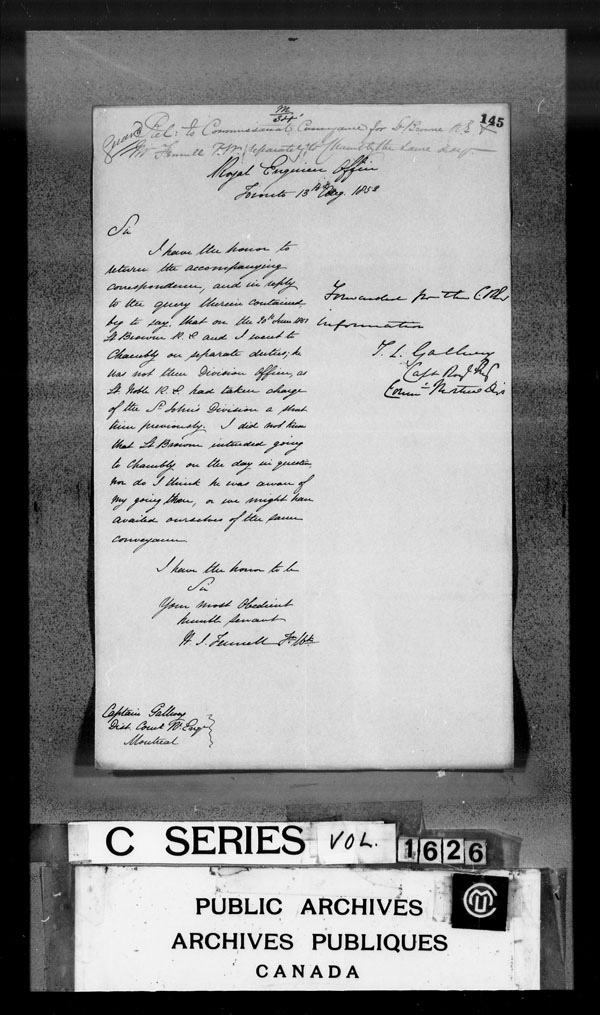 M
145
to Commissariat Conveyance for Lt Browne R.E &
Mr Fennell separately to Chambly the same day
Royal Engineer Office
Toronto 13th Aug. 1853
Sir
I have the honor to
return the accompanying
correspondence, and in reply
to the query therein contained
beg to say, that on the 20th June 1853
Lt Browne R.E and I went to
Chambly on separate duties; he
was not then Division Officer, as
Lt Noble R.E. had taken charge
of the St John's Division a short
time previously. I did not know
that Lt Browne intended going
to Chambly on the day in question,
nor do I think he was aware of
my going there, or we might have
availed ourselves of the same
conveyance
I have the honor to be
Sir
Your most Obedient
humble servant
H. J. Fennell
Captain Gallwey
Dist. Comg Rl Engr
Montreal
Forwarded for the
information
T. L. Gallwey
Capt Royl Engr
C SERIES VOL. 1626
PUBLIC ARCHIVES
ARCHIVES PUBLIQUES
CANADA